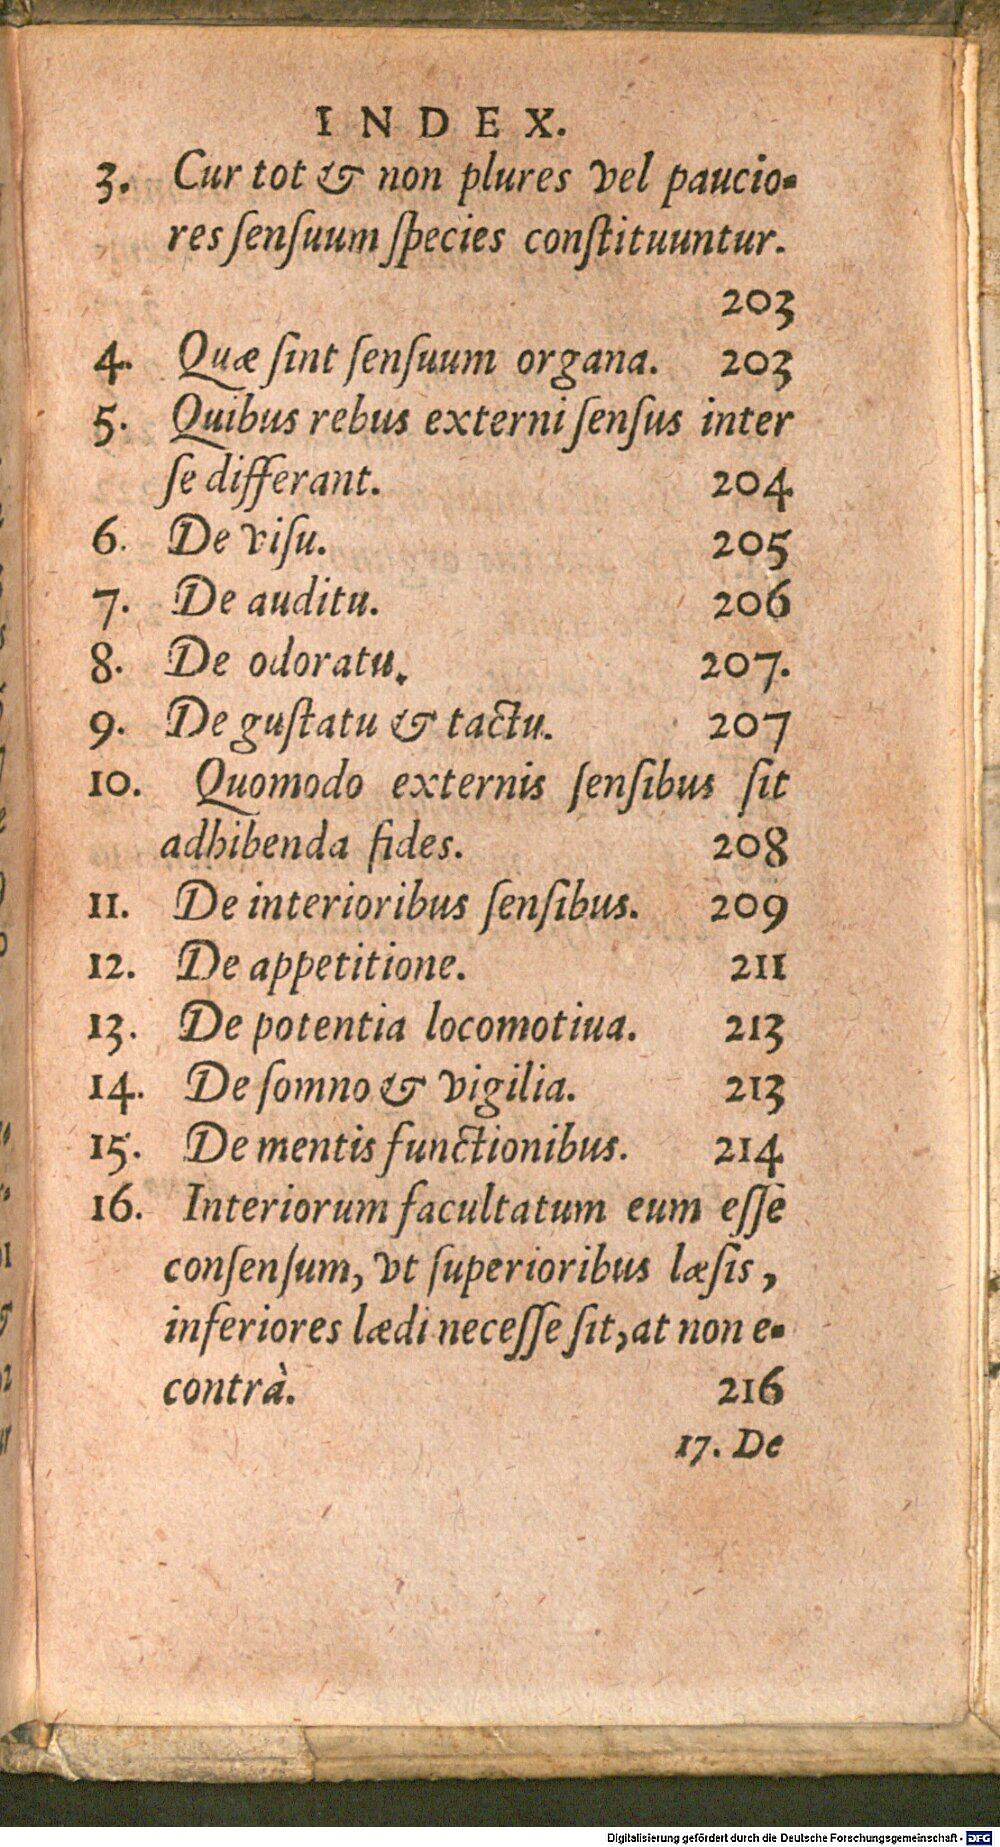 INDEX.
3. Cur tot & non plures vel paucio-
res ſenſuum ſpecies conſtituuntur.
203
4. Quæ ſint ſenſuum organa. 203
5. Quibus rebus externi ſenſus inter
ſe differant. 204
6. De viſu. 205
7. De auditu. 206
8. De odoratu. 207.
9. De guſtatu & tactu. 207
10. Quomodo externis ſenſibus ſit
adhibenda fides. 208
11. De interioribus ſenſibus. 209
12. De appetitione. 211
13. De potentia locomotiua. 213
14. De ſomno & vigilia. 213
15. De mentis functionibus. 214
16. Interiorum facultatum eum eſſe
conſenſum, vt ſuperioribus læſis,
inferiores lædi neceſſe ſit, at non e-
contrà. 216
17. De
Digitalisierung gefördert durch die Deutsche Forschungsgemeinschaft - DFG